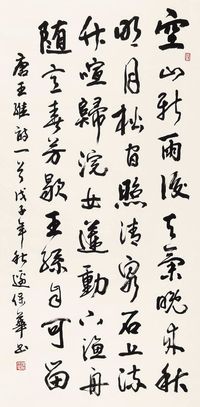 空山新雨後天氣晚来秋
明月松間照清泉石上流
竹喧歸浣女蓮動下漁舟
随意春芳歇王孫自可留
唐王維詩一首戊子年秋保華書